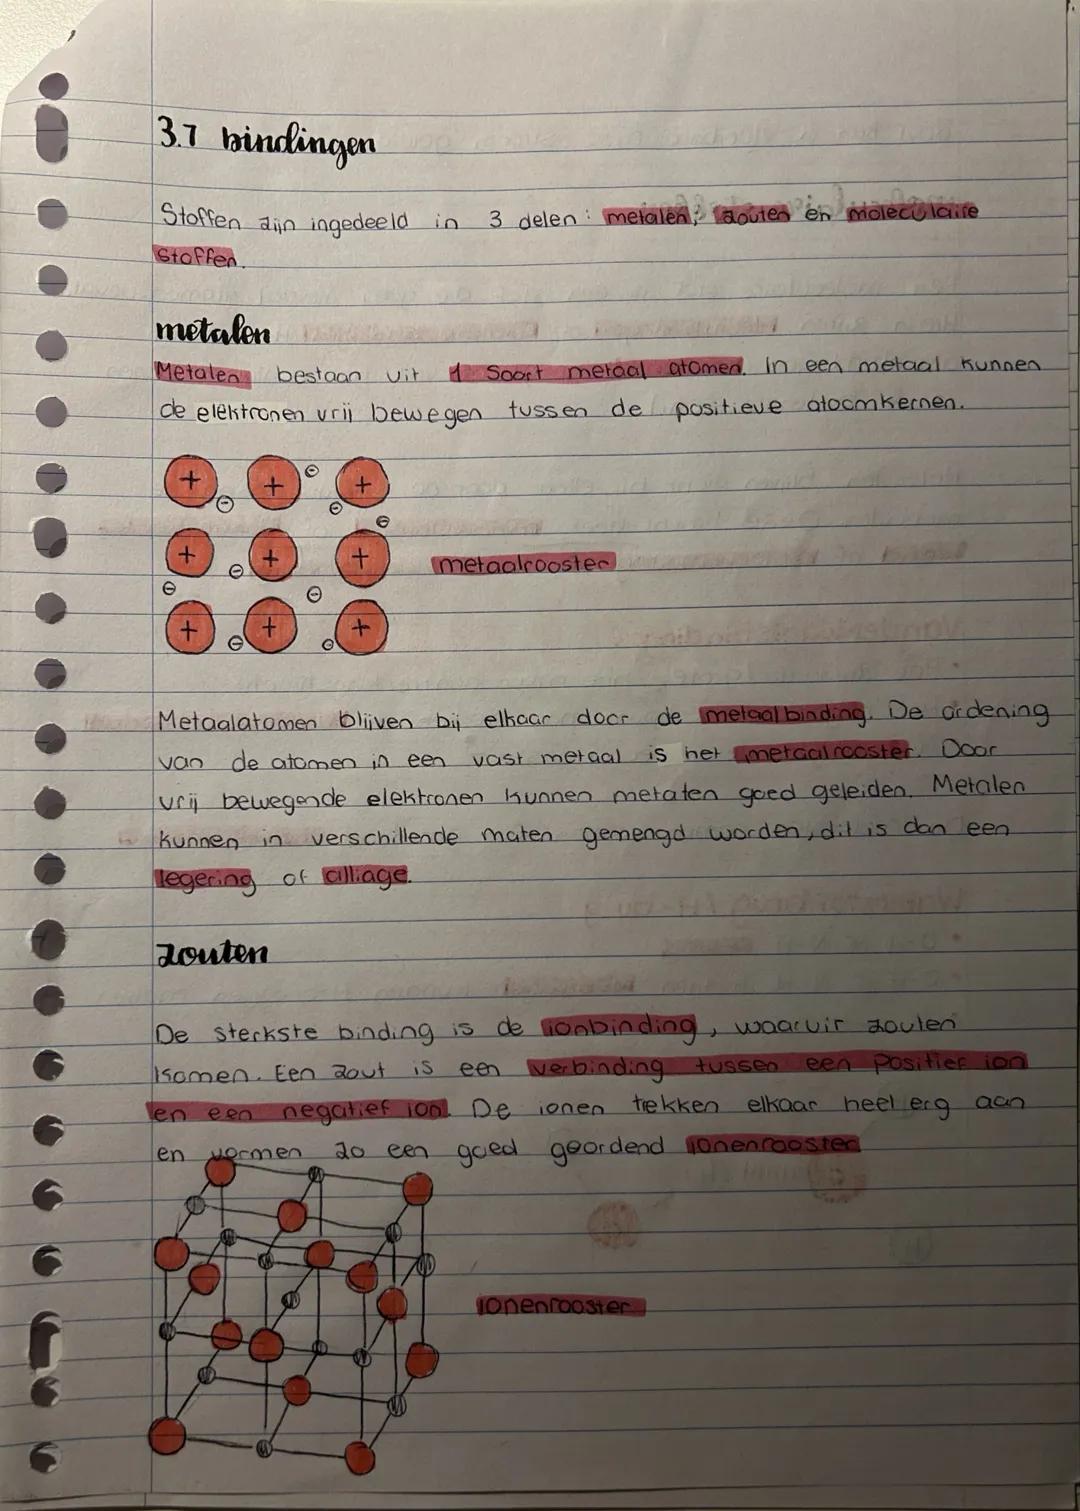 3.7 bindingen
Stoffen zijn ingedeeld in 3 delen: metalen, zouten en moleculaire
stoffen.
metalen
Metalen bestaan uit 1 soort metaal atomen. In een metaal kunnen
de elektronen vrij bewegen tussen de positieve atoomkernen.
+ + +
+ + +
metaalrooster
+ + +
Metaalatomen blijven bij elkaar door de metaalbinding. De ordening
van de atomen in een vast metaal is het metaalrooster. Door
vrij bewegende elektronen kunnen metalen goed geleiden. Metalen
kunnen in verschillende maten gemengd worden, dit is dan een
legering of alliage.
zouten
De sterkste binding is de ionbinding, waaruir zouten
komen. Een zout is een verbinding tussen een positief ion
en een negatief ion. De ionen trekken elkaar heel erg aan
en vormen zo een goed geordend ionenrooster
ionenrooster